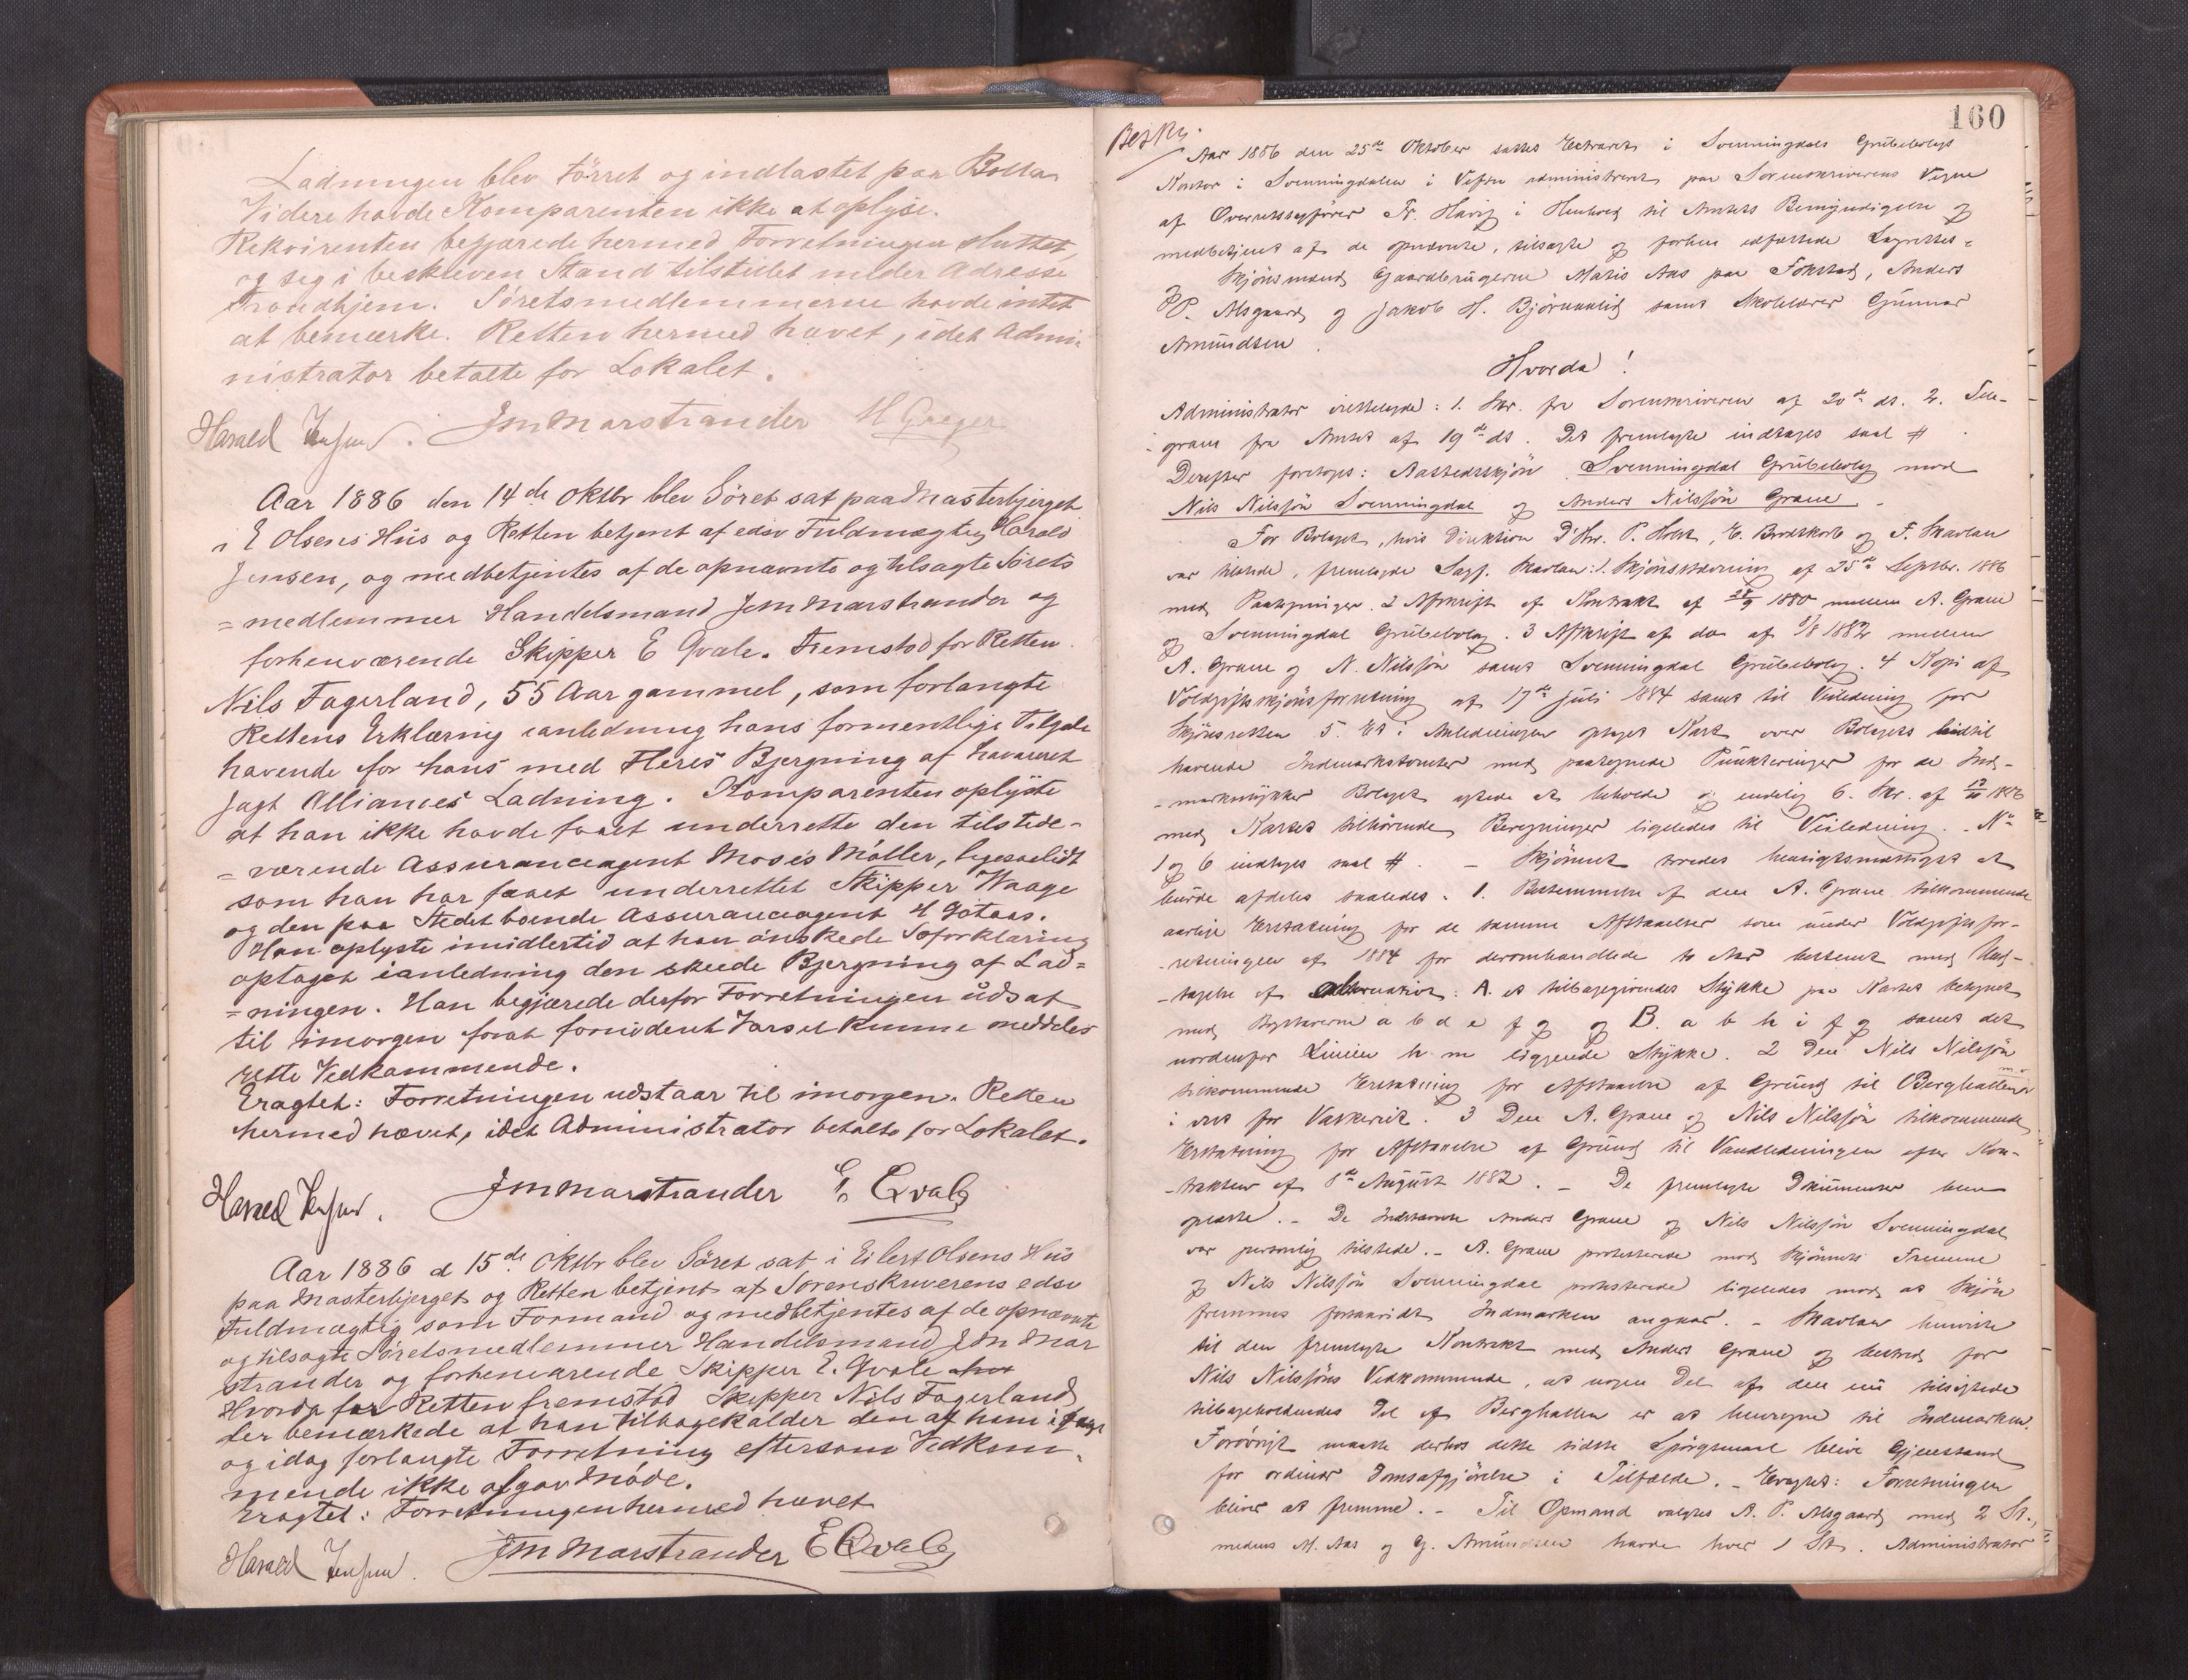 Ladningen blev tørret og indlastet paa Bolten
Videre havde Komparenten ikke at oplyse.
Rekvirenten begjærede hermed Forretningen sluttet,
og sig i beskreven Stand tilstillet under Adresse
Trondhjem. Søretsmedlemmerne havde intet
at bemærke. Retten hermed hævet, idet Admi-
nistrator betalte for Lokalet.
Harald Jensen. JM Marstrander H Gæger
Aar 1886 den 14de Oktbr blev Søret sat paa Masterbjerget
i E Olsens Hus og Retten betjent af edsv Fuldmægtig Harald
Jensen, og medbetjentes af de opnævnte og tilsagte Sørets
=medlemmer Handelsmand JM Marstrander og
forhenværende Skipper E Qvale. Fremstod for Retten
Nils Fagerland, 55 Aar gammel, som forlangte
Rettens Erklæring ianledning hans formentlige Tilgode
havende for hans med Fleres Bjergning af havareret
Jagt Alliances Ladning. Komparenten oplyste
at han ikke havde faaet underrette den tilstede-
=værende Assuranceagent Moses Møller, ligesaalidt
som han har faaet underrettet Skipper Waage
og den paa Stedet boende Assuranceagent H Gøtaas.
Han oplyste imidlertid at han ønskede Søforklaring
optaget ianledning den skeede Bjergning af Lad=
=ningen. Han begjærede derfor Forretningen udsat
til imorgen forat fornødent Varsel kunne meddeles
rette Vedkommende.
Eragtet: Forretningen udstaar til imorgen. Retten
hermed hævet, idet Administrator betalte for Lokalet.
Harald Jensen. JM Marstrander E. Qvale
Aar 1886 d 15de Oktbr blev Søret sat i Eilert Olsens Hus
paa Masterbjerget og Retten betjent af Sorenskriverens edsv
Fuldmægtig som Formand og medbetjentes af de opnævnte
og tilsagte Søretsmedlemmer Handelsmand JM Mar
strander og forhenværende Skipper E. Qvale
Hvorda for Retten fremstod Skipper Nils Fagerland
der bemærkede at han tilbagekalder den af ham igaar
og idag forlangte Forretning eftersom Vedkom-
mende ikke afgav Møde.
Eragtet: Forretningen hermed hævet
Harald Jensen. JM Marstrander E Qvale
160
Besk
Aar 1886 den 25de Oktober sattes Extraret i Svenningdals Grubebolags
Kontor i Svenningdalen i Vefsn administreret paa Sorenskriverens Vegne
af Overretssagfører Fr. Havig i Henhold til Amtets Bemyndigelse og
medbetjent af de opnævnte, tilsagte og forhen edfæstede Lagrettes=
Skjønsmænd Gaardbrugerne Mathis Aas paa Fokstad, Anders
P. Alsgaard og Jakob H. Bjørnaalid samt Skolelærer Gunnar
Amundsen.
Hvorda!
Administrator irettelagde: 1. Skr. fra Sorenskriveren af 20de ds. 2. Tele-
-gram fra Amtet af 19de ds. Det fremlagte indtages saal #.
Derefter foretoges: Aastedsskjøn Svenningdal Grubebolag mod
Nils Nilssøn Svenningdal og Anders Nilssøn Grane.
For Bolaget, hvis Direktion D'Hr. P. Holst, E. Brodtkorb og F. Skavlan
var tilstede, fremlagde Sagf. Skavlan: 1. Skjønsstævning af 25de Septbr. 1886
med Paategninger. 2 Afskrift af Kontrakt af 28/9 1880 mellem A. Grane
og Svenningdal Grubebolag. 3 Afskrift af do af 8/8 1882 mellem
A. Grane og N. Nilssøn samt Svenningdal Grubebolag. 4 Kopi af
Voldgiftsskjønsforretning af 17de Juli 1884 samt til Veiledning for
Skjønsretten 5. Et i Anledningen optaget Kart over Bolagets indtil
havende Indmarkstomter med paategnede Punkteringer for de Ind-
-marksstykker Bolaget agtede at beholde og endelig 6. Skr. af 12/10 1886
med Kartet tilhørende Beregninger ligeledes til Veiledning. No
1 og 6 indtages saal #. - Skjønnet troedes hensigtsmæssigst at
burde afdeles saaledes. 1. Bestemmelse af den A. Grane tilkommende
aarlige Erstatning for de samme Afstaaelser som under Voldgiftsfor-
-retningen af 1884 for deromhandlede to Aar bestemt med Und-
-tagelse af alternativt: A. et tilbagegivendes Stykke paa Kartet betegnet
med Bogstaverne a b d e f g og B. a b h i f g samt det
nordenfor Linien h m liggende Stykke. 2 Den Nils Nilssøn
tilkommende Erstatning for Afstaaelse af Grund til Berghallen
i det for Vaskeriet. 3 Den A. Grane og Nils Nilssøn tilkommende
Erstatning for Afstaaelse af Grund til Vandledningen efter Kon-
-trakten af 8de August 1882. - De fremlagte Dokumenter blev
oplæste. - De Indstævnte Anders Grane og Nils Nilssøn Svenningdal
var personlig tilstede. - A. Grane protesterede mod Skjønnets Fremme
og Nils Nilssøn Svenningdal protesterede ligeledes mod at Skjøn
fremmes forsaavidt Indmarken angaar. - Skavlan henviste
til den fremlagte Kontrakt med Anders Grane og bestred for
Nils Nilssøns Vedkommende, at nogen Del af den nu tilsigtede
tilbageholdendes Del af Berghallen er at henregne til Indmarken.
Forøvrigt maatte derhos dette sidste Spørgsmaal blive Gjenstand
for ordinær Domsafgjørelse i Tilfælde. - Eragtet: Forretningen
bliver at fremme. - Til Opmand valgtes A. P. Alsgaard med 2 St.,
medens M. Aas og G. Amundsen havde hver 1 St. Administrator